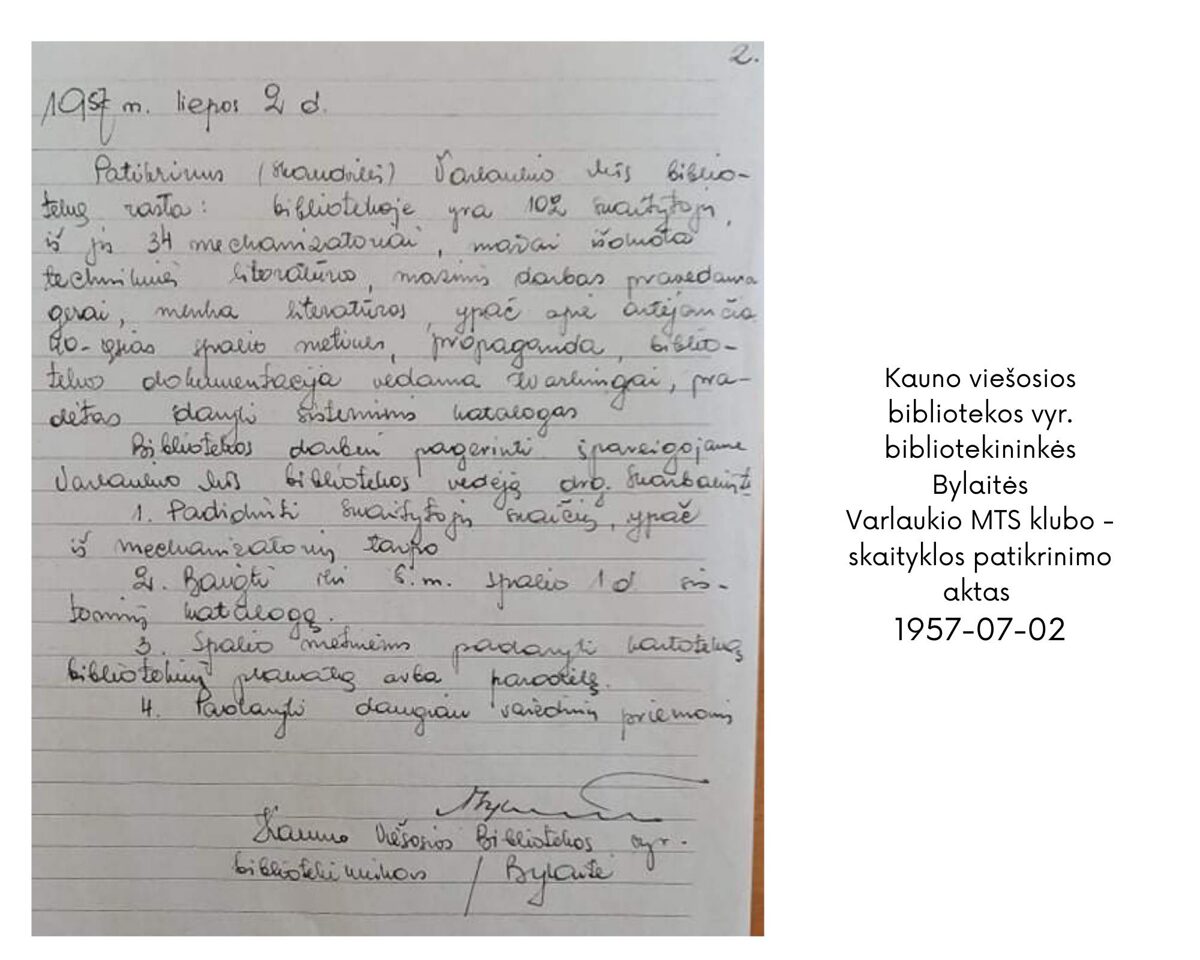 2.
1957 m. liepos 2 d.
Patikrinus Varlaukio MTS biblio-
teką rasta: bibliotekoje yra 102 skaitytojų,
iš jų 34 mechanizatoriai, mažai išduota
technikinės literatūros, masinis darbas pravedama
gerai, menka literatūros, ypač apie artėjančia
40-ąsias spalio metines, propaganda, biblio-
tekos dokumentacija vedama tvarkingai, pra-
dėtas daryti sisteminis katalogas
Bibliotekos darbui pagerinti įpareigojame
Varlaukio MTS bibliotekos vedėją drg.
1. Padidinti skaitytojų skaičių, ypač
iš mechanizatorių tarpo
2. Baigti iki š.m. spalio 1 d. sis-
teminį katalogą.
3. Spalio metinėms padaryti kartoteką
bibliotekinį plakatą arba parodėlę.
4. Padaryti daugiau vaizdinių priemonių
Kauno Viešosios Bibliotekos vyr.
bibliotekininkas / Bylaitė
Kauno viešosios
bibliotekos vyr.
bibliotekininkės
Bylaitės
Varlaukio MTS klubo -
skaityklos patikrinimo
aktas
1957-07-02